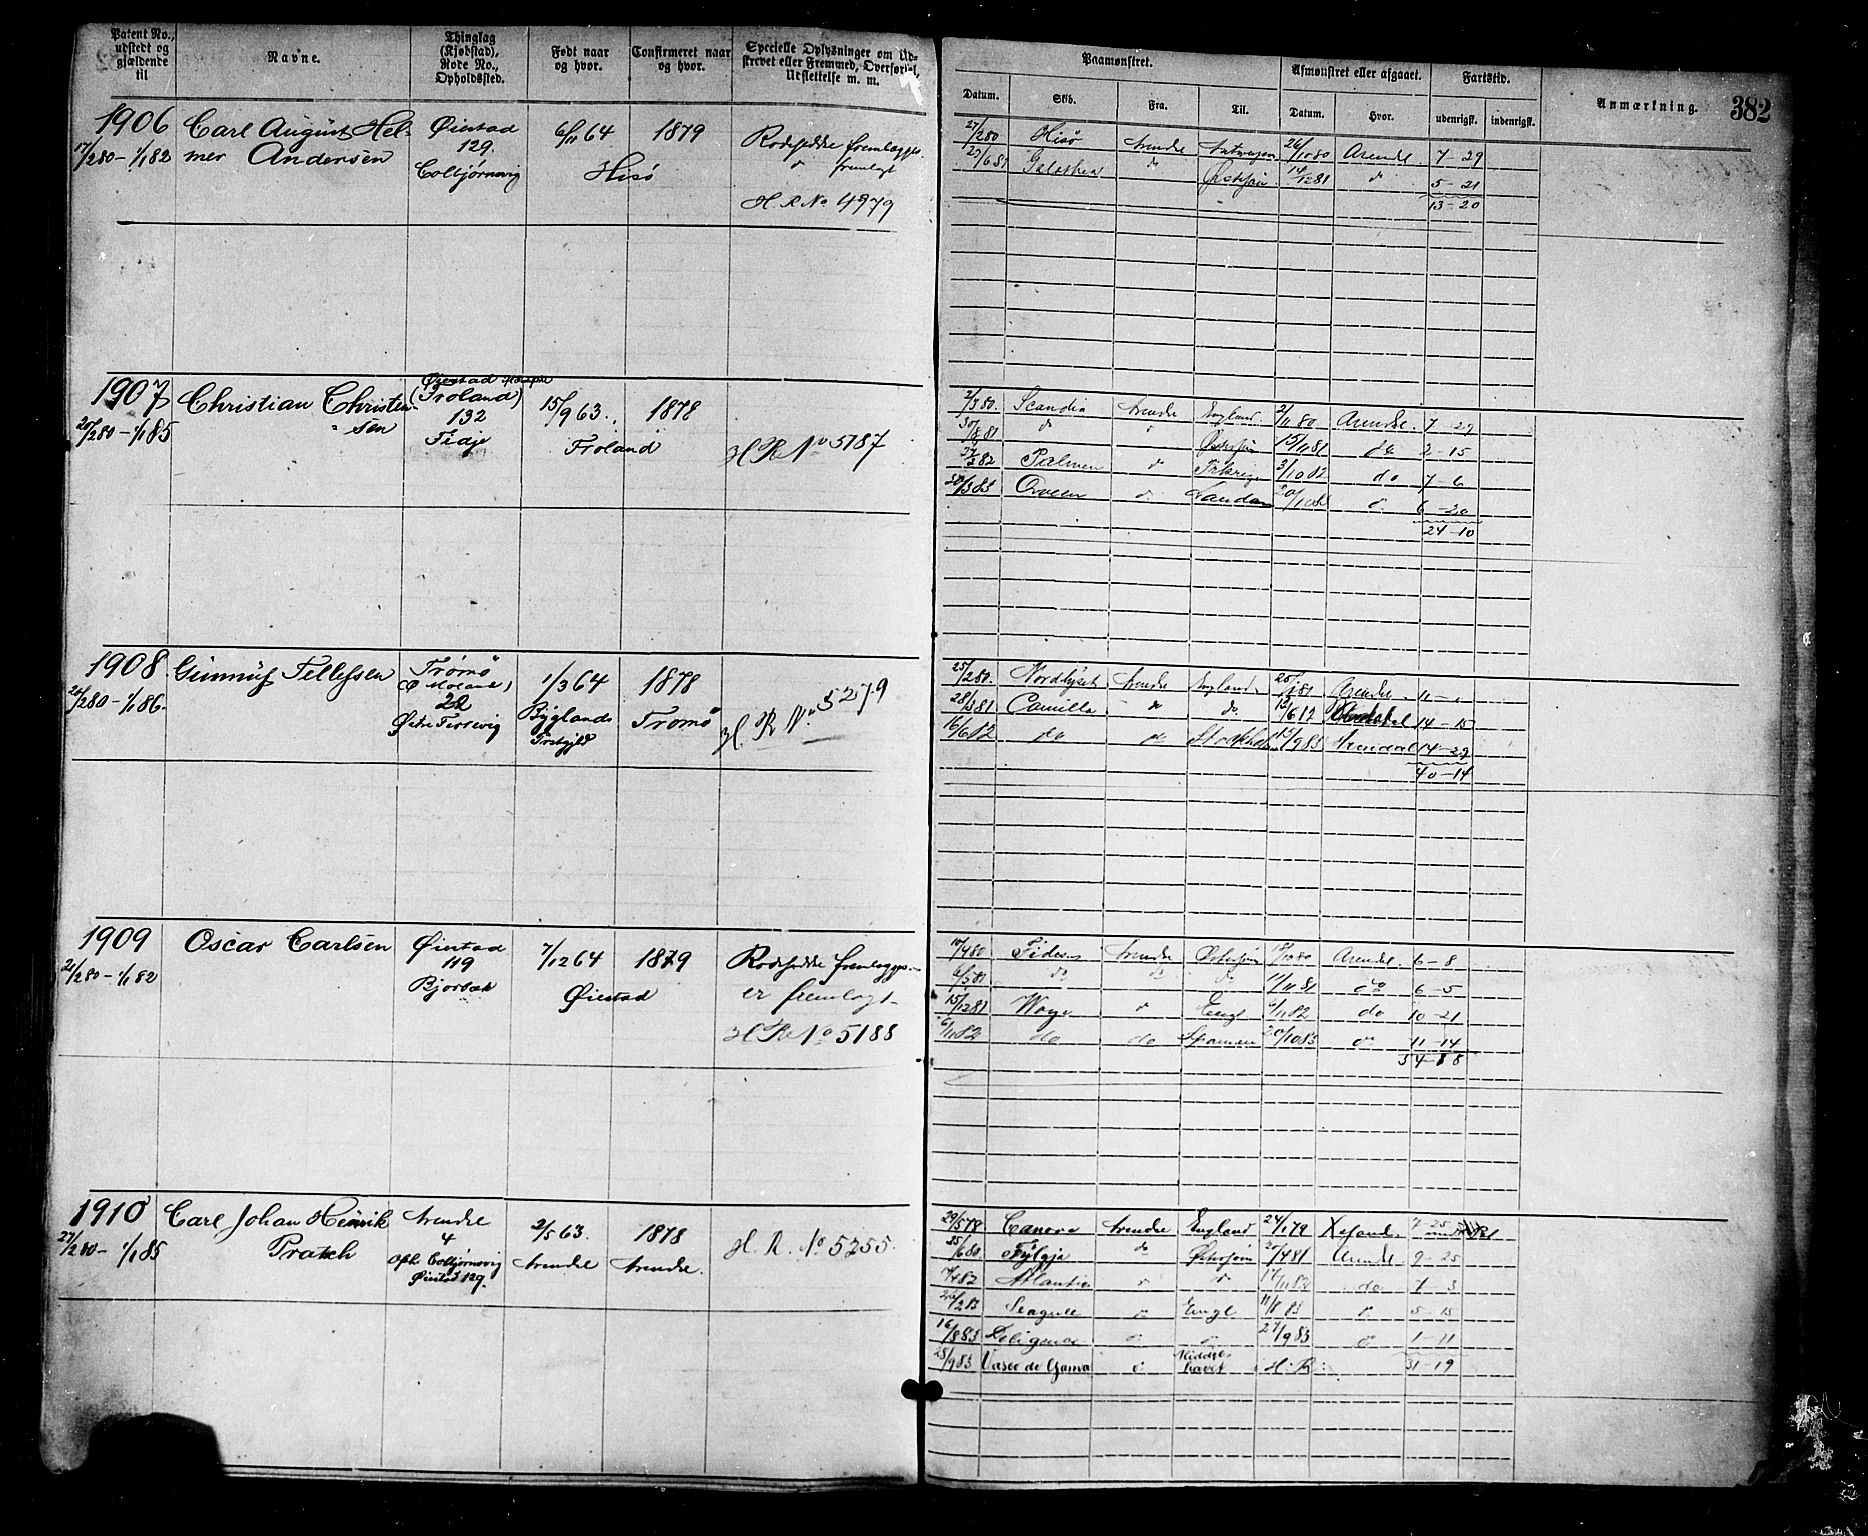 Patent No., udstedt og gjældende til
Navne.
Thinglag (Kjøbstad), Rode No., Opholdssted.
Født naar og hvor.
Confirmeret naar og hvor.
Specielle Oplysninger om Udskrevet eller Fremmed, Overførsel, Udslettelse m. m.
Paamønstret.
Datum.
Skib.
Fra.
Til.
Afmønstret eller afgaaet.
Datum.
Hvor.
Fartstid.
udenrigsk.
indenrigsk.
Anmærkning.
382
1906
17/2 80 - 1/1 82
Carl August Hel-
mer Andersen
Øiestad
129.
Colbjørnsvig
6/11 64
1879
Hisø
Rodeseddel fremlægges.
fremlagt
H. R No 4979
27/2 80 Hisø Arendal Antwerpen 26/10 80 Arendl. 7-29
23/6 81 Galathea do Østersøen 14/12 81 do 5-21
13-20
1907
20/2 80 - 1/1 85
Christian Christen-
sen
Øiestad
(Froland)
132
Fidje
15/9 63.
1878
Froland
H R No 5187
2/3 80. Scandia Arendl England 2/11 80 Arendal. 7-29
30/8 81 do Østersøen 15/11 81 do 2-15
27/2 82 Palmen do 3/10 82 do 7-6
30/3 83 do London 20/10 83 do 6-20
24-10
1908
24/2 80 - 1/1 86.
Gunnuf Tellefsen
Tromø
22
Østre Torsevig
1/3 64
Byglands
Prstgjld
1878
Tromø
H. R No 5279
25/2 80. Nordlyset Arendl England 25/1 81 Arendl. 11-
28/3 81 Camilla do do. 13/6 82 14-15
16/6 82 do do Stockholm 13/9 83 Arendal 14-29
40-14
1909
21/2 80 - 1/1 82
Oscar Carlsen
Øiestad
119
Bjorbæk
7/12 64
1879
Øiestad
Rodeseddel fremlægges.
er fremlagt
H R No 5188
10/4 80 Fides Arendl Østersøen 18/10 80 Arendl. 6-8
6/5 81 do do do 11/11 81 do 6-5
15/12 81 do Engl 6/11 82 do 10-21
6/11 82 do do Spanien 20/10 83 do 11-14
34-18
1910
27/2 80 - 1/1 85
Carl Johan Henrik
Pratch
Arendl
4
oph. Colbjørnsvig
Øiestad 129.
2/5 63.
Arendal
1878
Arendl.
H. R. No 5255.
29/5 78 Canora Arendl England 24/1 79 7-25
25/6 80 Fylgja do Østersøen 21/4 81 Arendl 9-25
7/4 82 Atlantic do do 17/11 82 do 7-3
26/2 83 Seagull do Engl 11/8 83 do 5-15
16/8 83 do do 27/9 83 do 1-11
28/9 83 Vasco de Gama do Middel-
havet H: R: 31-19